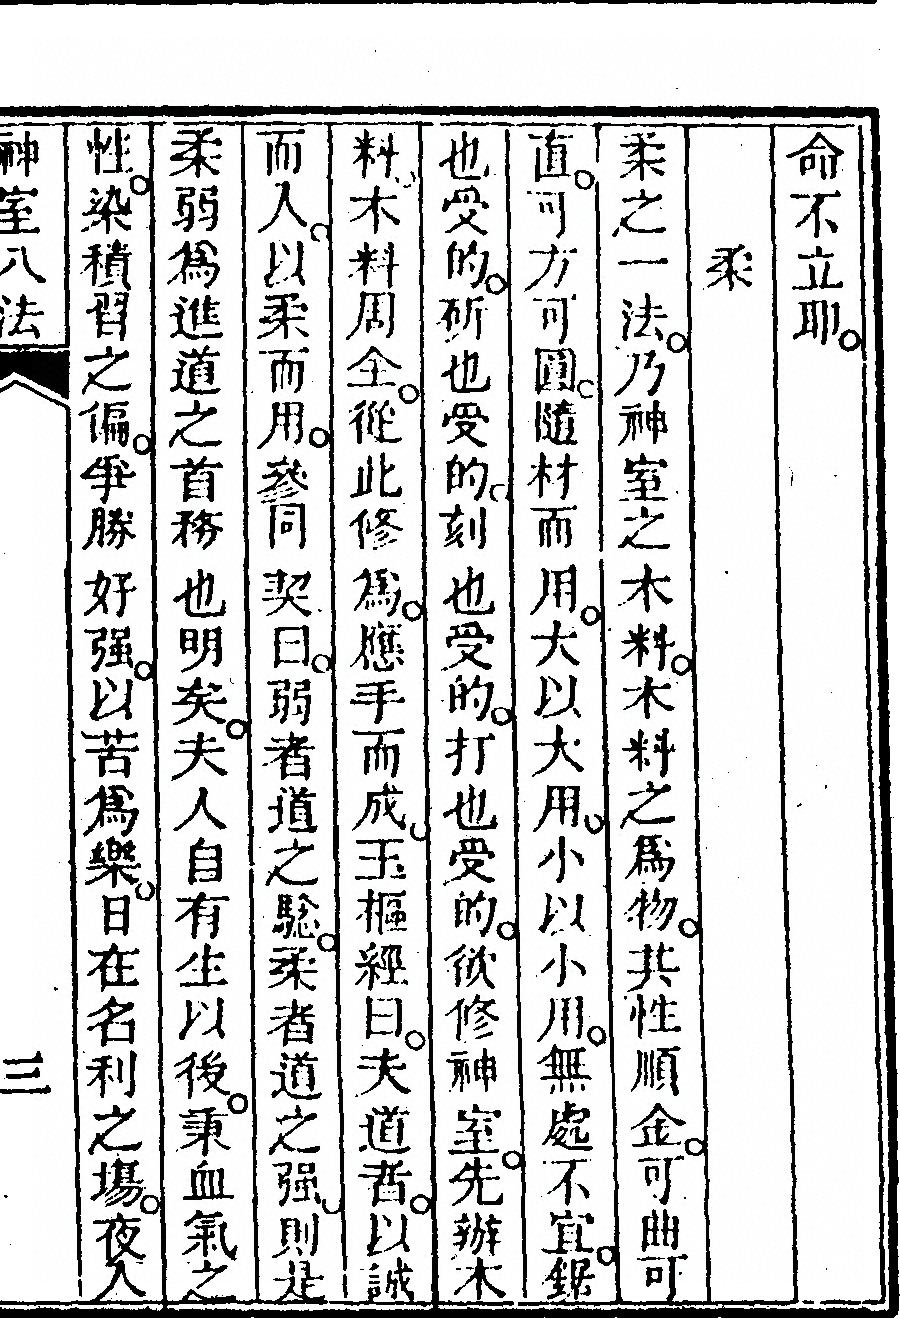 命不立耶。
柔
柔之一法。乃神室之木料。木料之爲物。其性順金。可曲可
直。可方可圓。隨材而用。大以大用。小以小用。無處不宜。鋸
也受的。斫也受的。刻也受的。打也受的。欲修神室。先辦木
料。木料周全。從此修爲。應手而成。玉樞經曰。夫道者。以誠
而入。以柔而用。參同契曰。弱者道之驗。柔者道之强。則是
柔弱爲進道之首務也明矣。夫人自有生以後。秉血氣之
性。染積習之偏。爭勝好强。以苦爲樂。日在名利之場。夜入
神室八法
三